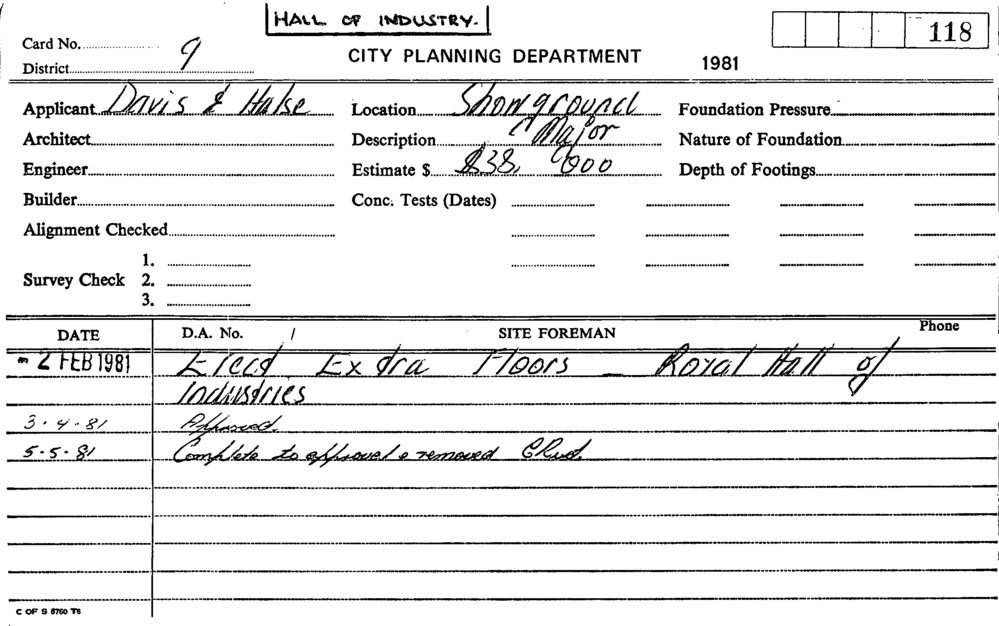 HALL OF INDUSTRY.
118
Card No. 9
District
CITY PLANNING DEPARTMENT 1981
Applicant Davis & Halse Location Showground Foundation Pressure
Architect Description Major Nature of Foundation
Engineer Estimate $ $38,000 Depth of Footings
Builder Conc. Tests (Dates)
Alignment Checked
1.
Survey Check 2.
3.
DATE D.A. No. / SITE FOREMAN Phone
2 FEB 1981 Erect Extra Floors - Royal Hall of
Industries
3.4.81 Approved.
5.5.81 Complete to approval & removed
C OF S 8750 T6